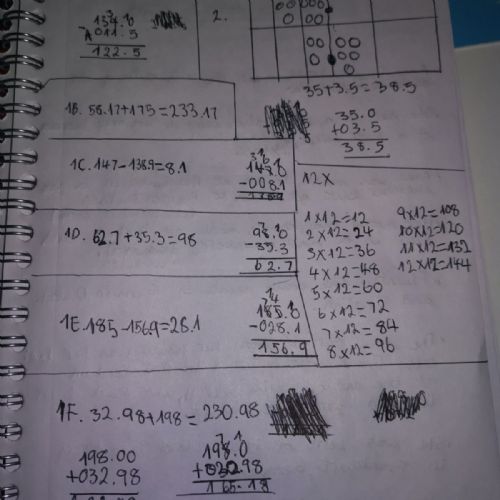 134.0
- 011.5
122.5
2.
35+3.5=38.5
35.0
+03.5
38.5
1B. 58.17+175=233.17
1C. 147-138.9=8.1
-008.1
1D. 62.7+35.3=98
98.0
-35.3
62.7
1E. 185-156.9=28.1
185.0
-028.1
156.9
12x
1x12=12
2x12=24
3x12=36
4x12=48
5x12=60
6x12=72
7x12=84
8x12=96
9x12=108
10x12=120
11x12=132
12x12=144
1F. 32.98+198=230.98
198.00
+032.98
198.0
+032.98